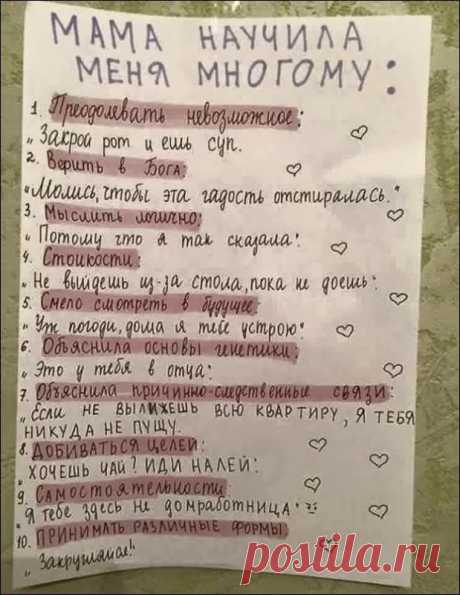 МАМА НАУЧИЛА
МЕНЯ МНОГОМУ:
1. Преодолевать невозможное:
„Закрой рот и ешь суп.
2. Верить в Бога:
„Молись, чтобы эта гадость отстиралась."
3. Мыслить логично:
„Потому что я так сказала".
4. Стойкости:
„Не выйдешь из-за стола, пока не доешь".
5. Смело смотреть в будущее:
„Уж погоди, дома я тебе устрою".
6. Объяснила основы генетики:
„Это у тебя в отца".
7. Объяснила причинно-следственные связи:
„ЕСЛИ НЕ ВЫЛИЖЕШЬ ВСЮ КВАРТИРУ, Я ТЕБЯ
НИКУДА НЕ ПУЩУ.
8. ДОБИВАТЬСЯ ЦЕЛЕЙ:
„ХОЧЕШЬ ЧАЙ? ИДИ НАЛЕЙ".
9. Самостоятельности:
„Я тебе здесь не домработница"
10. ПРИНИМАТЬ РАЗЛИЧНЫЕ ФОРМЫ
„Закругляйся!"
postila.ru